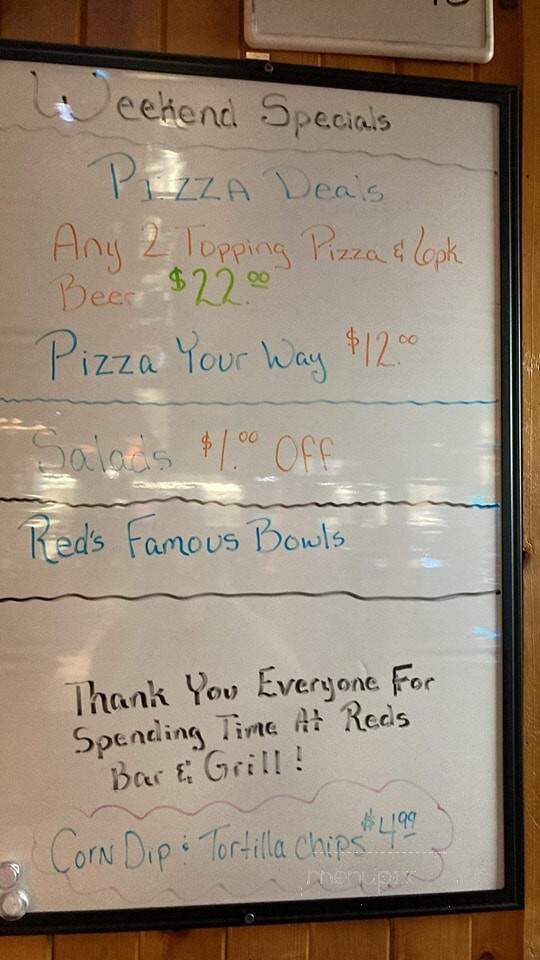 Weekend Specials
Pizza Deals
Any 2 Topping Pizza & 6pk
Beer $22.00
Pizza Your Way $12.00
Salads $1.00 Off
Red's Famous Bowls
Thank You Everyone For
Spending Time At Reds
Bar & Grill!
Corn Dip & Tortilla Chips $4.99
menupix